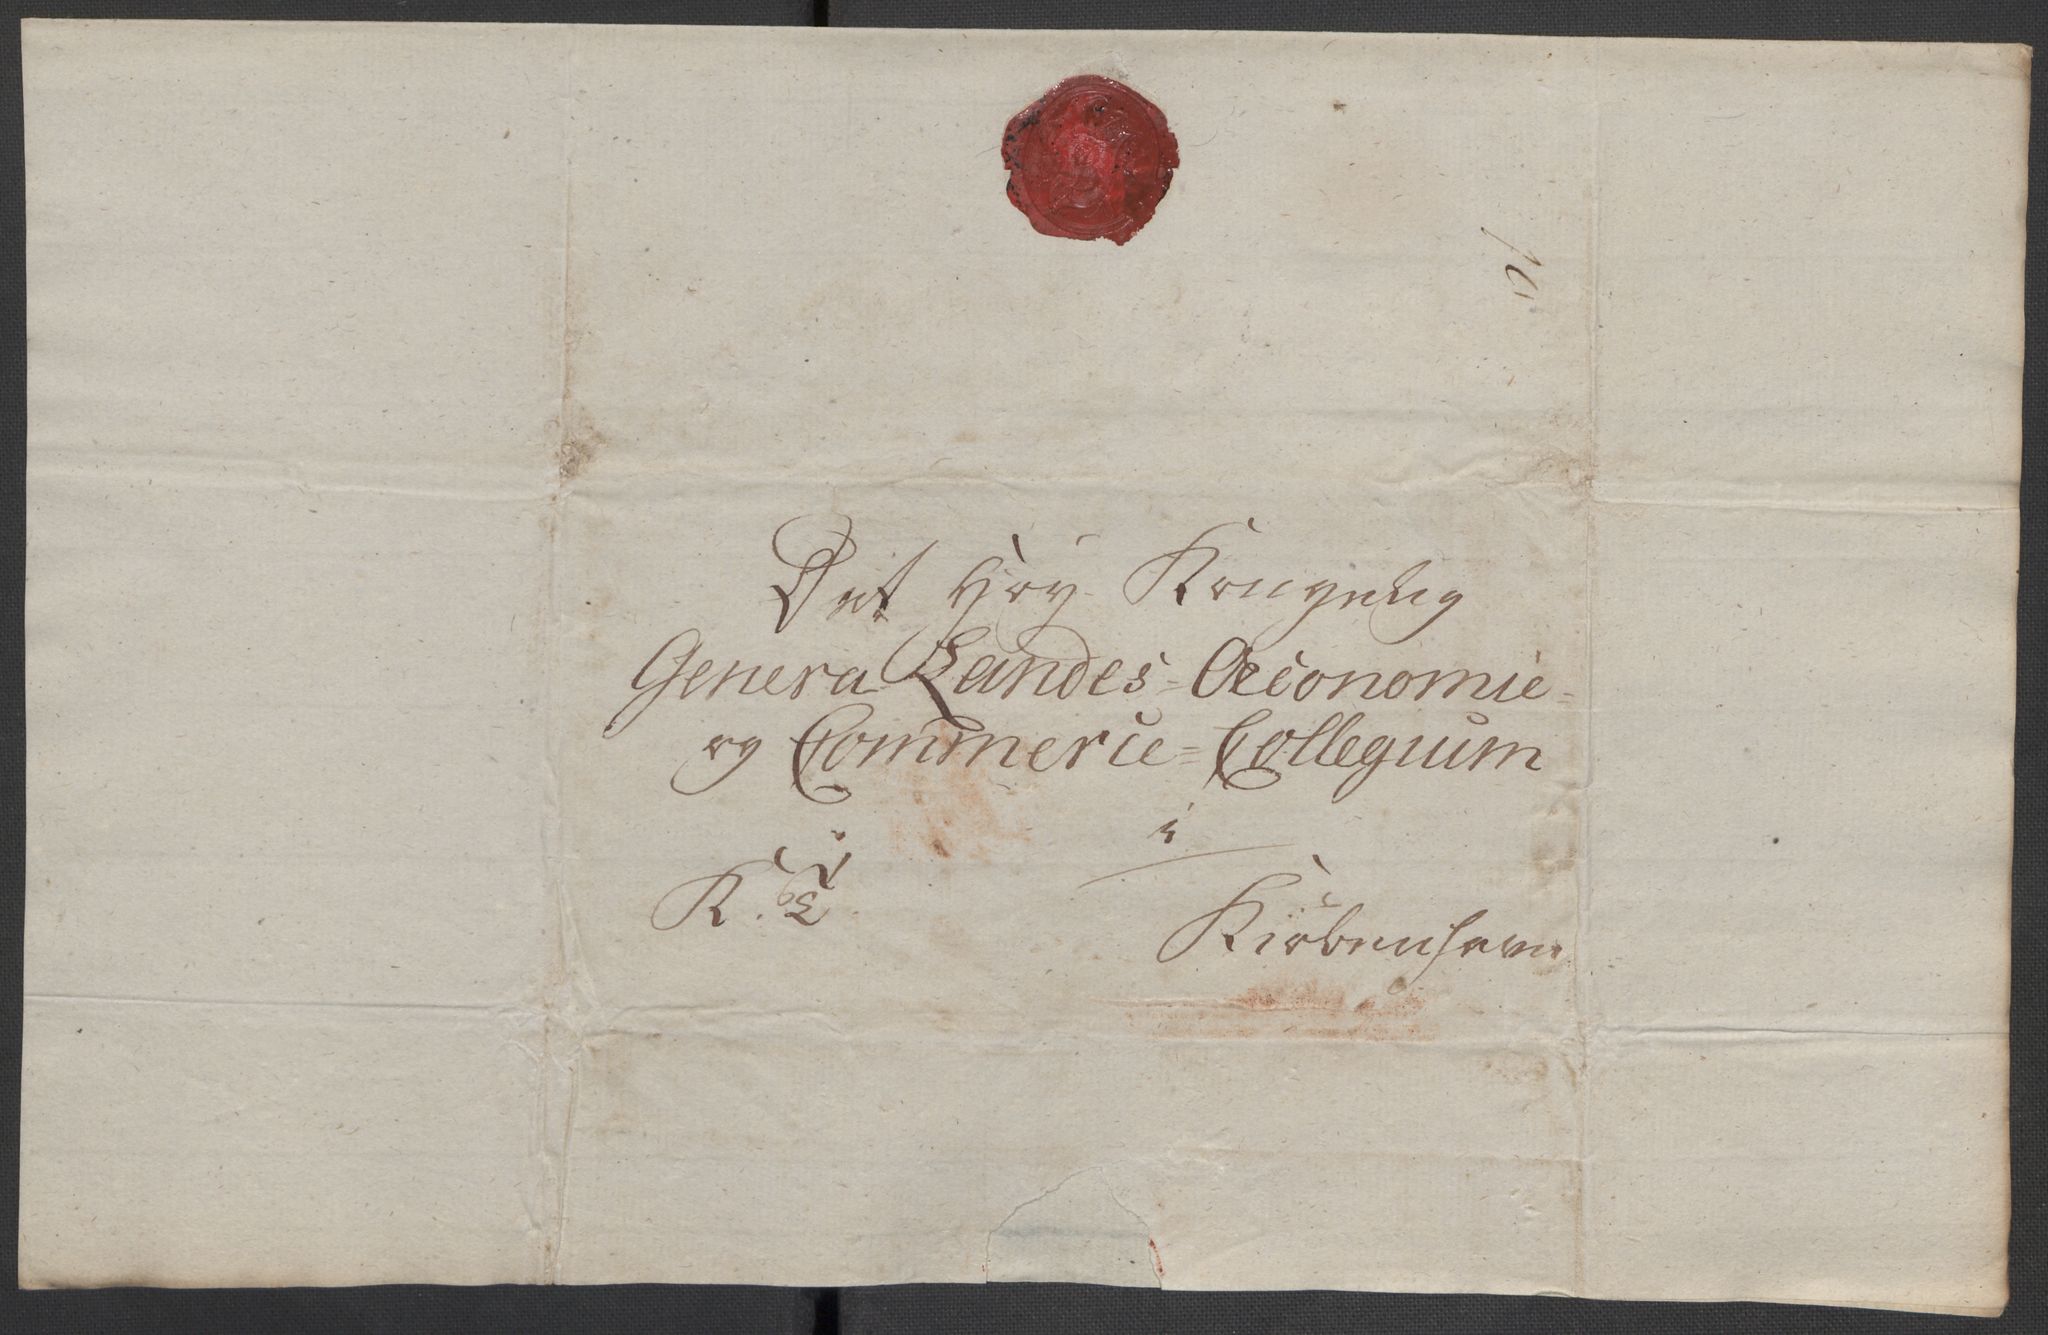 10
Det Høy Kongelig
General Landes- Oeconomie-
og Commercie- Collegium
i
K. T. Kiöbenhavn